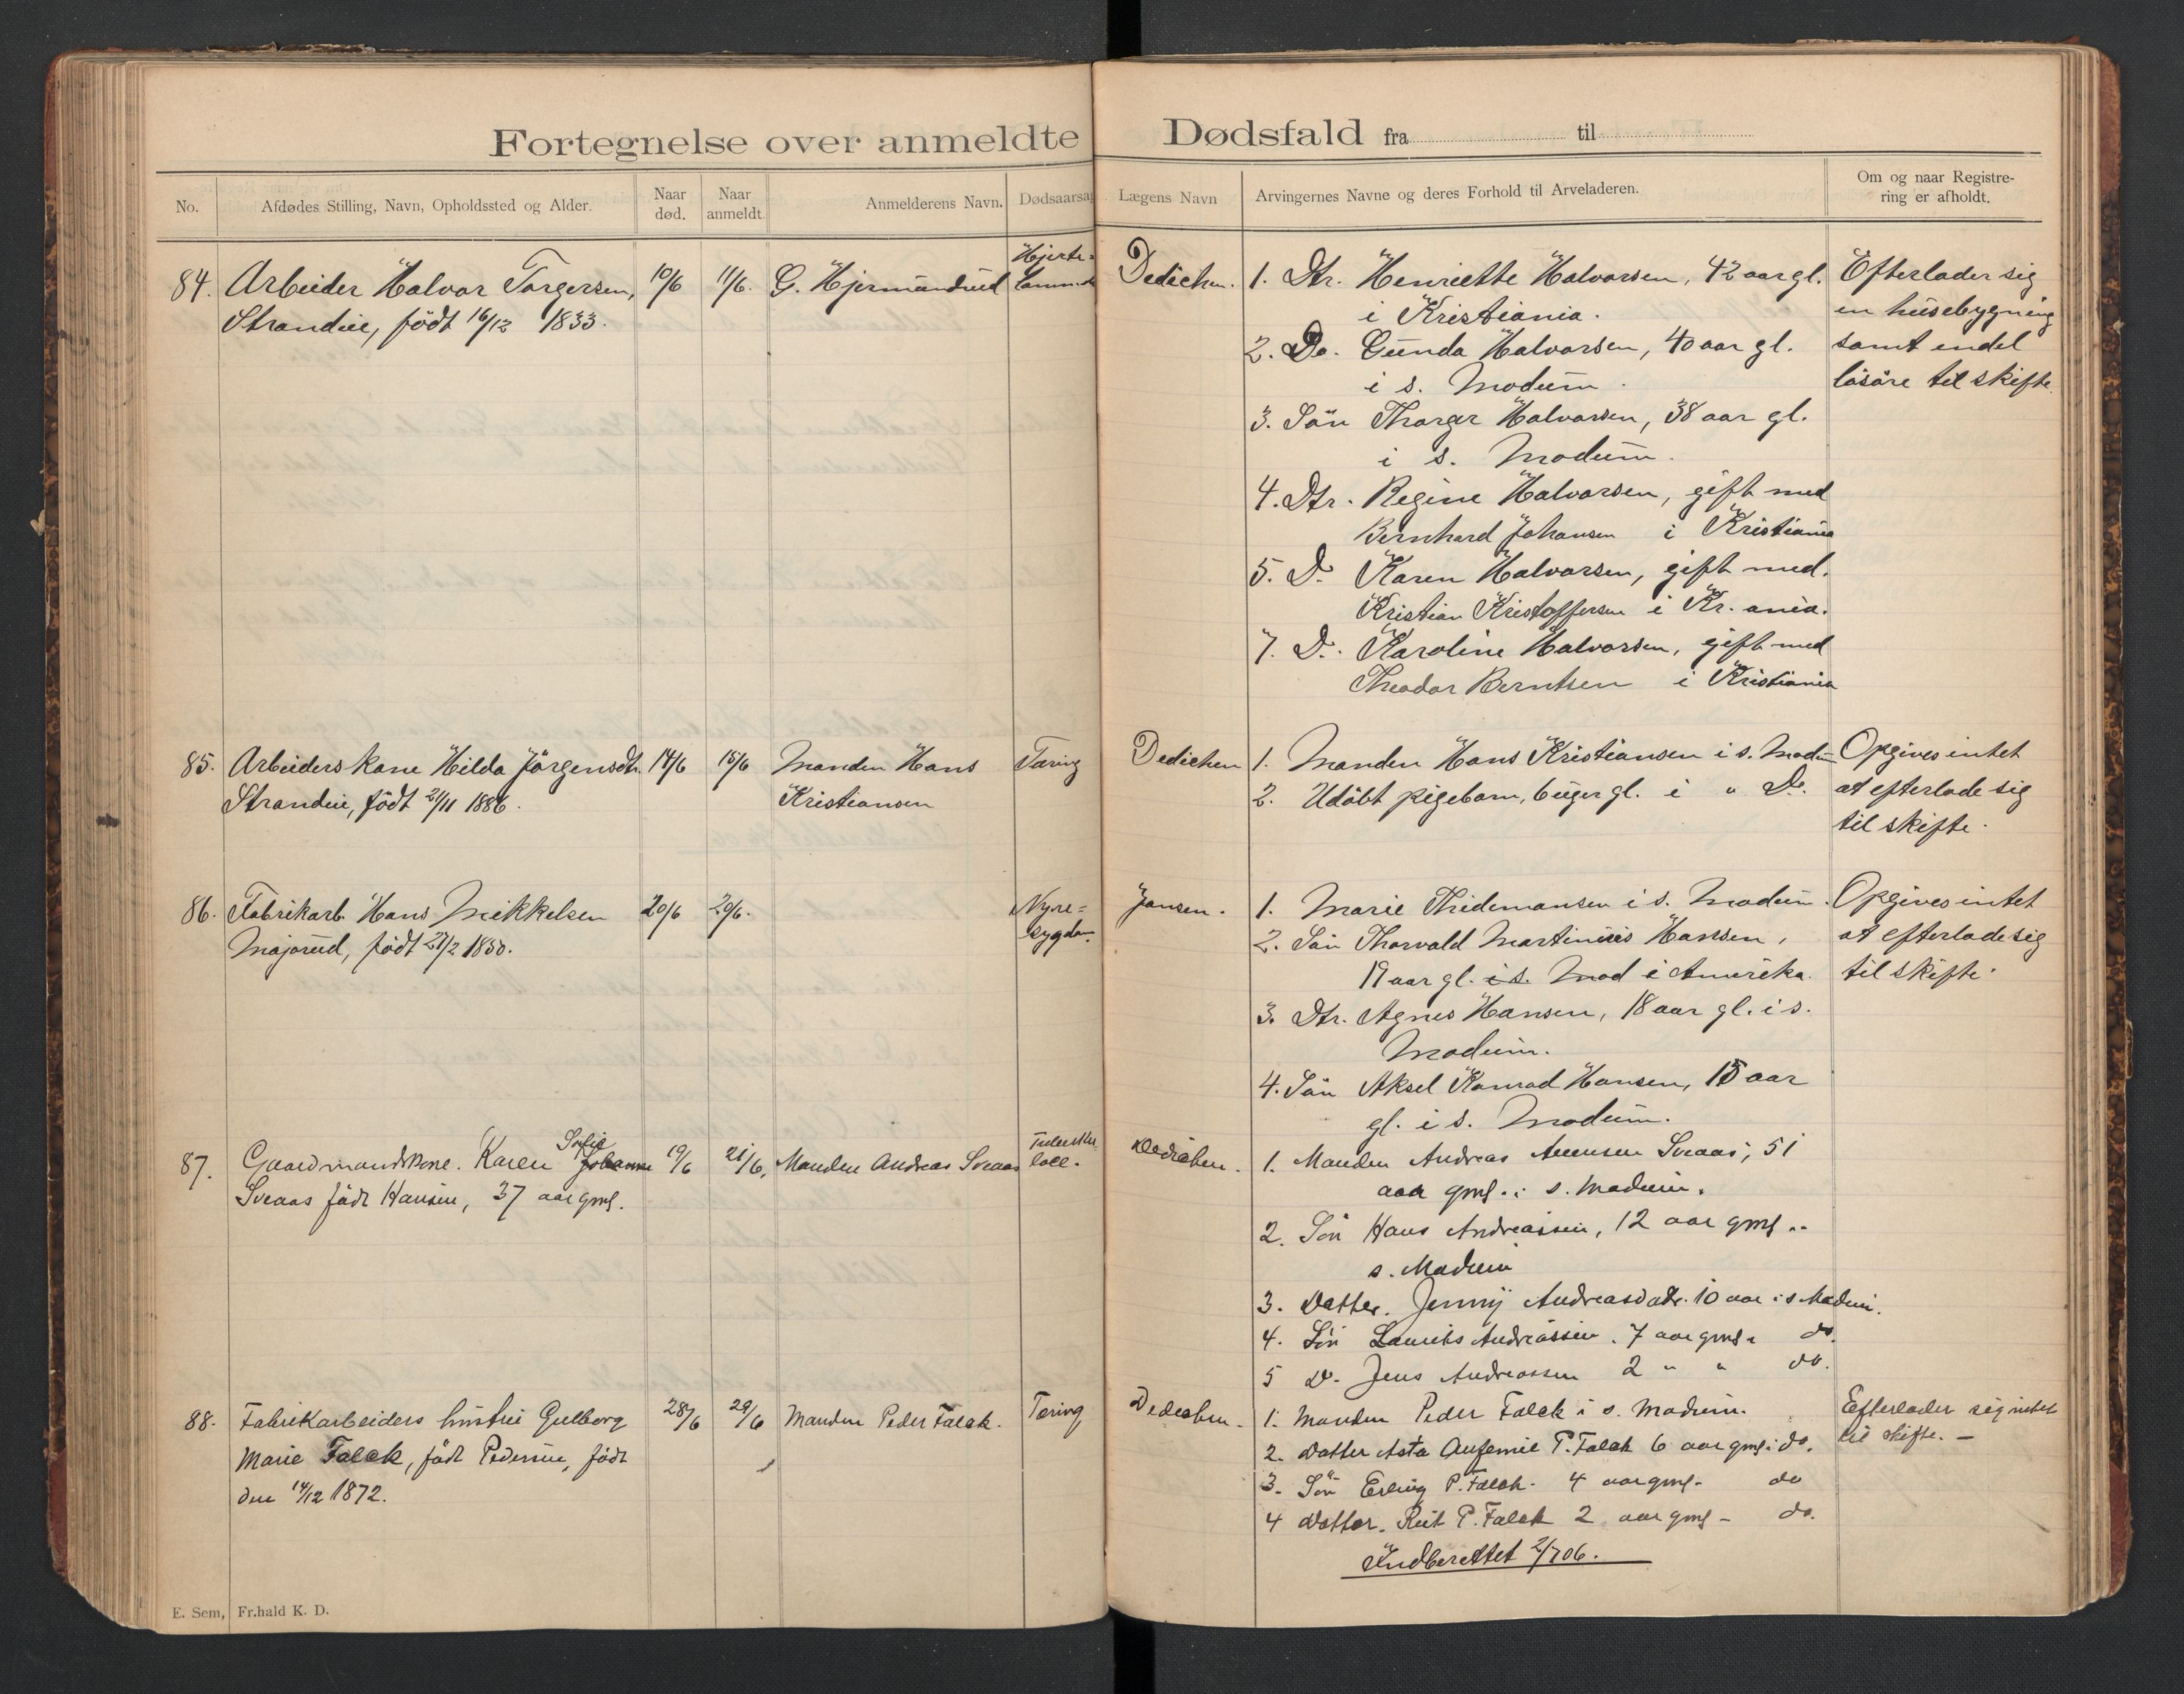 Fortegnelse over anmeldte Dødsfald fra til
No.
Afdødes Stilling, Navn, Opholdssted og Alder.
Naar død.
Naar anmeldt.
Anmelderens Navn.
Dødsaarsag
Lægens Navn
Arvingernes Navne og deres Forhold til Arveladeren.
Om og naar Registre-
ring er afholdt.
84. Arbeider Halvor Torgersen, 10/6 11/6. G. Hjermundrud Hjerte=
Strandie, född 16/12 1833.
Dedichen.
1. Dtr. Henriette Halvorsen, 42 aar gl.
i Kristiania.
2. Do. Gunda Halvorsen, 40 aar gl.
i s. Modum.
3. Sön Thorgr Halvorsen, 38 aar gl.
i s. Modum.
4. Dtr. Regine Halvorsen, gift med
Bernhard Johansen i Kristiania
5. D. Karen Halvorsen, gift med.
Kristian Kristoffersen i Kr. ania.
7. D. Karoline Halvorsen, gift med
Theodor Berntsen i Kristiania
Efterlader sig
en husebygning
samt endel
lösöre til skifte.
85. Arbeiders kone Hilda Jörgensdtr. 14/6 15/6 Manden Hans Tæring
Strandie, födt 21/11 1886. Kristiansen
Dedichen
1. Manden Hans Kristiansen i s. Modum
2. Udöbt pigebarn, 6 uger gl. i " Do.
Opgives intet
at efterlade sig
til skifte.
86. Fabrikarb. Hans Mikkelsen 20/6 20/6. Nyre=
Majorud, födt 27/2 1850. sygdom.
Jansen.
1. Marie Thidemansen i s. Modum.
2. Sön Thorvald Martinius Hansen,
19 aar gl. i s. Mod i Amerika.
3. Dtr. Agnes Hansen, 18 aar gl. i s.
Modum.
4. Sön Aksel Konrad Hansen, 15 aar
gl. i s. Modum.
Opgives intet
at efterlade sig
til skifte.
87. Gaardmandskone. Karen Sofie Johanne 19/6 21/6. Manden Andreas Sveaas
Sveaas födt Hansen, 37 aar gml.
Dedichen.
1. Manden Andreas Sveaas, 51
aar gml. i s. Modum.
2. Sön Hans Andreassen, 12 aar gml. i
s. Modum
3. Datter. Jenny Andreasdatr. 10 aar i s Modum.
4. Sön Laurits Andreassen. 7 aar gml. do.
5 D. Jens Andreassen 2 " " do.
88. Fabrikarbeiders hustru Gulborg 28/6 29/6 Manden Peder Falck. Tæring
Marie Falck, födt Pedersen, födt
den 14/12 1872.
Dedichen.
1. Manden Peder Falck i s. Modum.
2. Datter Asta Aufemie P. Falck 6 aar gml. i do.
3. Sön Erling P. Falck. 4 aar gml. do
4 Datter. Rut P. Falck 2 aar gml - do.
Indberettet 2/7 06.
Efterlader sig intet
til skifte. -
E. Sem, Fr.hald K. D.